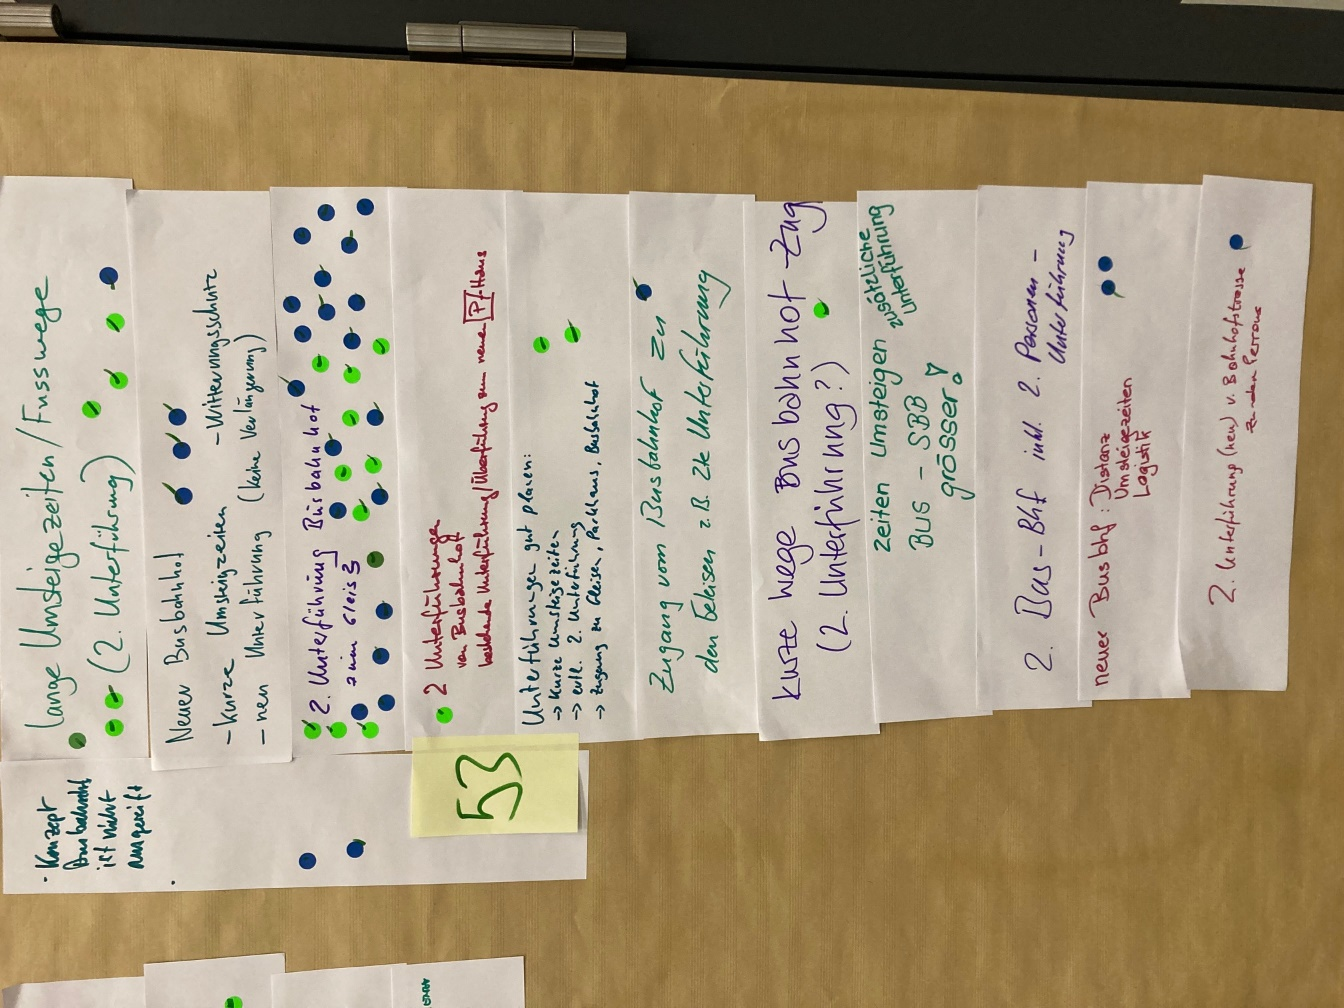 Lange Umsteigezeiten / Fusswege
(2. Unterführung)
Neuer Busbahnhof
- kurze Umsteigzeiten - Witterungsschutz
- neu Unterführung (keine Verlängerung)
2. Unterführung Busbahnhof
zum Gleis 3
2 Unterführungen
von Busbahnhof
bestehende Unterführung/Überführung zum neuen P-Haus
Unterführungen gut planen:
-> Kurze Umsteigezeiten
-> evtl. 2. Unterführung
-> Zugang zu Gleisen, Parkhaus, Busbahnhof
Zugang vom Busbahnhof zu
den Geleisen z.B. 2te Unterführung
Kurze Wege Busbahnhof - Zug
(2. Unterführung?)
Zeiten Umsteigen zusätzliche
Unterführung
BUS - SBB
grösser!
2. Bus-Bhf inkl. 2. Personen-
Unterführung
neuer Busbhf: Distanz
Umsteigezeiten
Logistik
2. Unterführung (neu) v. Bahnhofstrasse
zu den Perrons
· Konzept
Busbahnhof
ist nicht
ausgereift
53